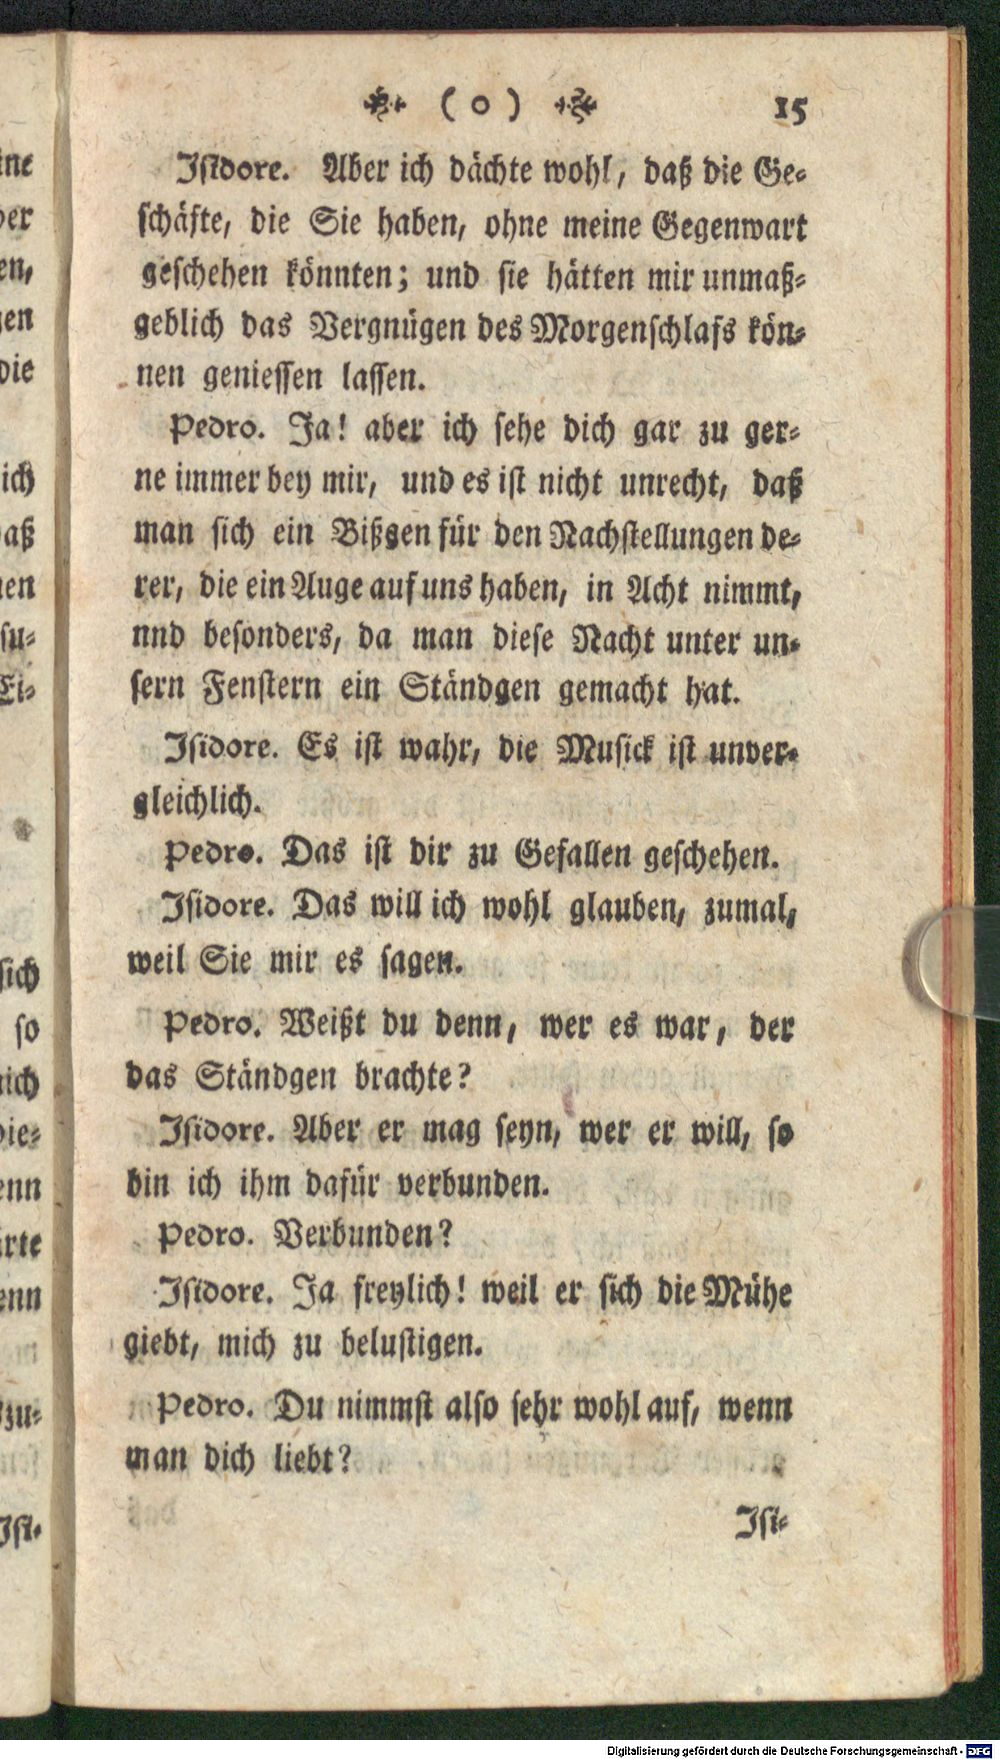 ( o ) 15
Isidore. Aber ich dächte wohl, daß die Ge-
schäfte, die Sie haben, ohne meine Gegenwart
geschehen könnten; und sie hätten mir unmaß-
geblich das Vergnügen des Morgenschlafs kön-
nen geniessen lassen.
Pedro. Ja! aber ich sehe dich gar zu ger-
ne immer bey mir, und es ist nicht unrecht, daß
man sich ein Bißgen für den Nachstellungen de-
rer, die ein Auge auf uns haben, in Acht nimmt,
nnd besonders, da man diese Nacht unter un-
sern Fenstern ein Ständgen gemacht hat.
Isidore. Es ist wahr, die Musick ist unver-
gleichlich.
Pedro. Das ist dir zu Gefallen geschehen.
Isidore. Das will ich wohl glauben, zumal,
weil Sie mir es sagen.
Pedro. Weißt du denn, wer es war, der
das Ständgen brachte?
Isidore. Aber er mag seyn, wer er will, so
bin ich ihm dafür verbunden.
Pedro. Verbunden?
Isidore. Ja freylich! weil er sich die Mühe
giebt, mich zu belustigen.
Pedro. Du nimmst also sehr wohl auf, wenn
man dich liebt?
Isi-
Digitalisierung gefördert durch die Deutsche Forschungsgemeinschaft - DFG